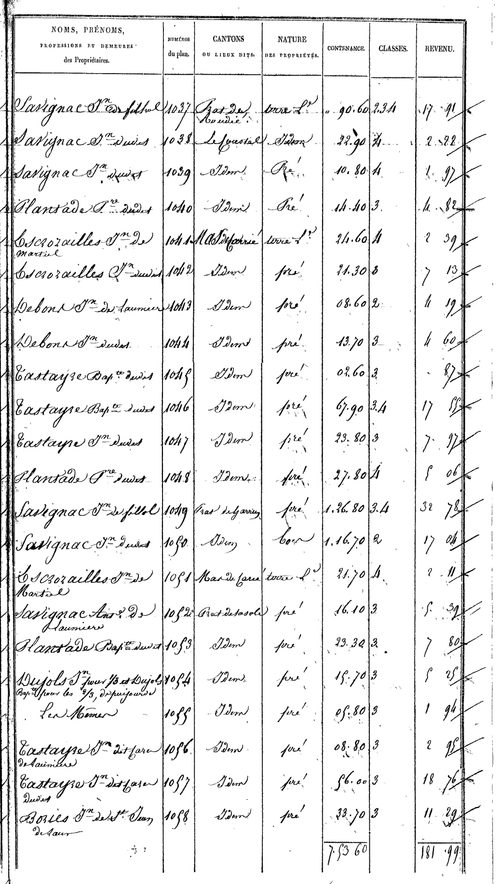 NOMS, PRÉNOMS, PROFESSIONS ET DEMEURES des Propriétaires. NUMÉROS du plan. CANTONS OU LIEUX DITS. NATURE DES PROPRIÉTÉS. CONTENANCE. CLASSES. REVENU.
Savignac Jn de filhol 1037 terre Lle " 90.60 2.3.4 17 91
Savignac Jn dudit 1038 Le Coustal Idem 22.90 4 2 22
Savignac Jn dudit 1039 Idem Pré 10.80 4 1 97
Plantade Pre dudit 1040 Idem Pré 14.40 3 4 82
Escrozailles Jn de Martiel 1041 terre Lle 24.60 4 2 39
Escrozailles Jn dudit 1042 Idem pré 21.30 3 7 13
Debons Jn de Laumiere 1043 Idem pré 08.60 2 4 19
Debons Jn dudit 1044 Idem pré 13.70 3 4 60
Tastayre Bapte dudit 1045 Idem pré 02.60 3 " 87
Tastayre Bapte dudit 1046 Idem pré 67.90 3.4 17 55
Tastayre Jn dudit 1047 Idem pré 23.80 3 7 97
Plantade Pre dudit 1048 Idem pré 27.80 4 5 06
Savignac Jn de filhol 1049 pré 1.26.80 3.4 32 78
Savignac Jn dudit 1050 Idem 1.16.70 2 17 04
Escrozailles Jn de Martiel 1051 terre Lle 21.70 4 2 11
Savignac Ant. de Laumiere 1052 pré 16.10 3 5 39
Plantade Bapte dudit 1053 Idem pré 23.30 3 7 80
Dujols Jn pour 1/3 et Dujols Bapte pour les 2/3, 1054 Idem pré 15.70 3 5 25
Les Mêmes 1055 Idem pré 05.80 3 1 94
Tastayre Jn dit de Laumiere 1056 Idem pré 08.80 3 2 95
Tastayre Jn dit dudit 1057 Idem pré 56.00 3 18 76
Bories Jn de St Jean de Laur 1058 Idem pré 33.70 3 11 29
7.53 60 181 99